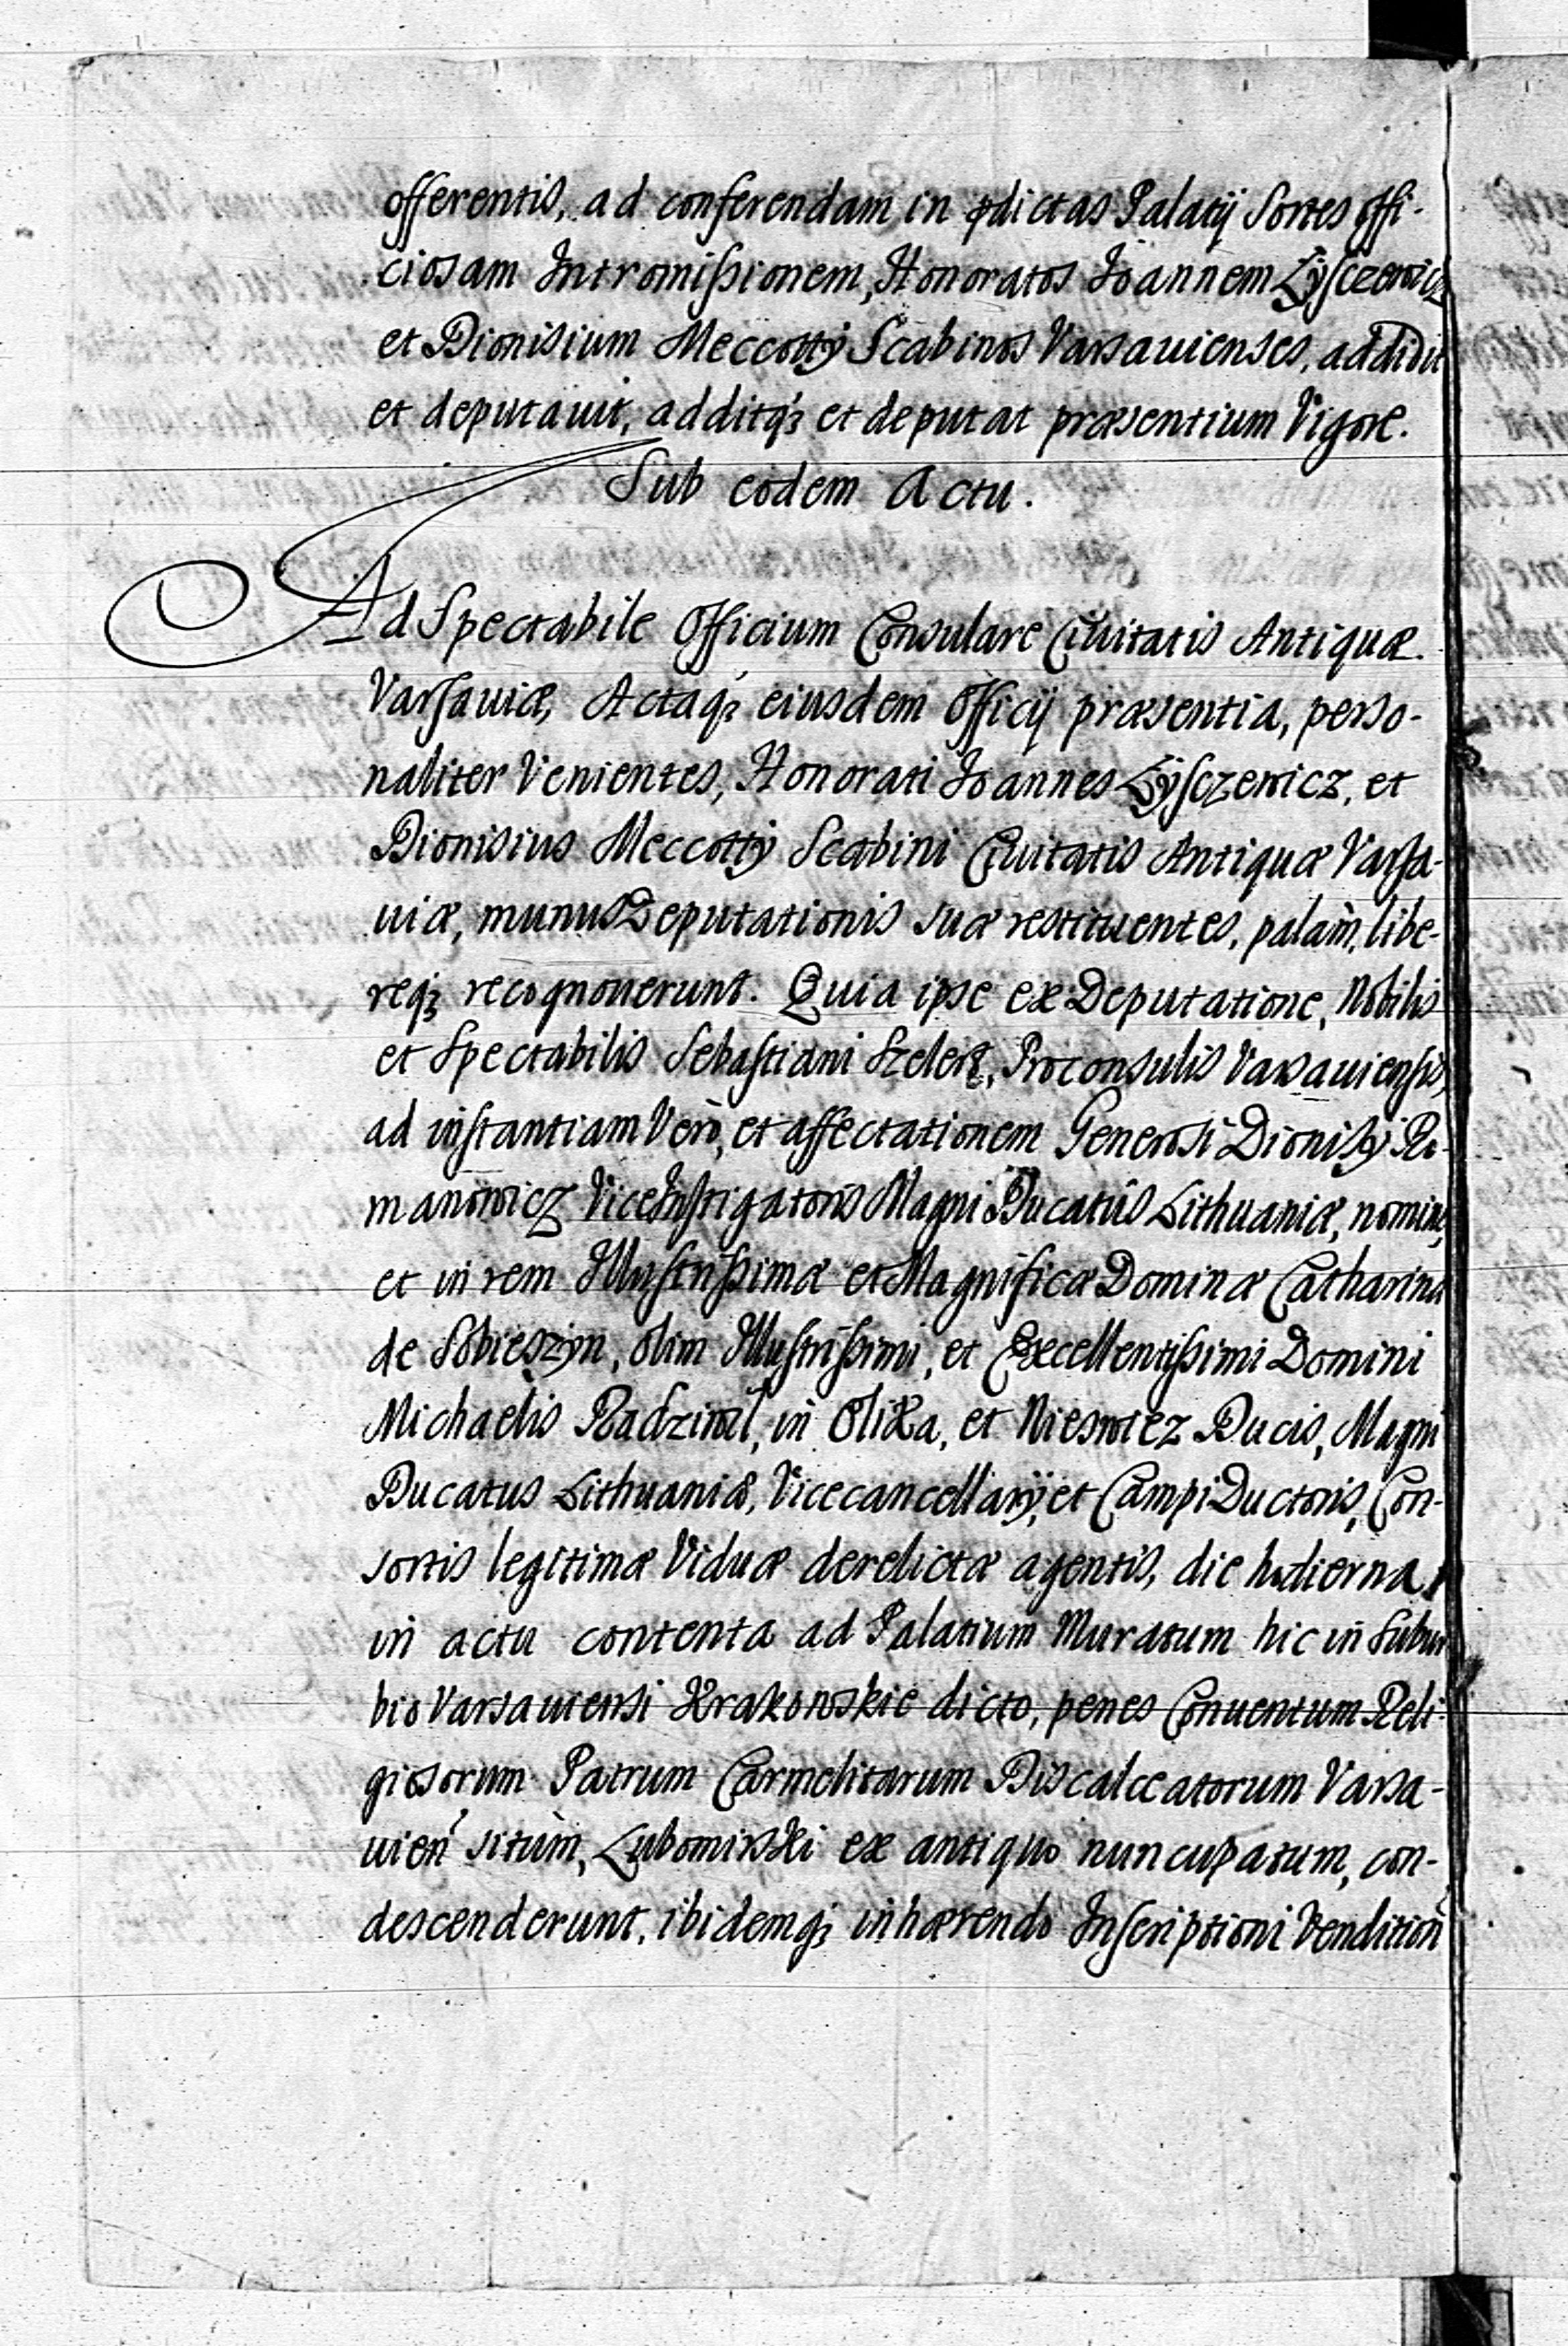 offerentis, ad conferendam in p̱dictas Palatÿ Sortes offi-
ciosam Intromißionem, Honoratos Joannem Łÿsczewicz
et Dionisium Meccottÿ Scabinos Varsauienses, addidit
et deputauit, additq́ꝫ et deputat præsentium Vigore.
Sub eodem Actu.
Ad Spectabile Officium Consulare Ciuitatis Antiquæ
Varsauiæ, Actaqꝫ eiusdem Officÿ præsentia, perso-
naliter Venientes, Honorati Joannes Łÿsczewicz, et
Dionisius Meccottÿ Scabini Ciuitatis Antiquæ Varsa-
uiæ, munus Deputationis suæ restituentes, palàm, libe-
reqꝫ recognouerunt. Quia ipse ex Deputatione, Nobilis
et Spectabilis Sebastiani Proconsulis Varsauiensis,
ad instantiam Verò, et affectationem Generosi Dionisÿ Ro-
manowicz ViceInstigatoris Magni Ducatûs Lithuaniæ, nomine,
et in rem Illustrißimæ et Magnificæ Dominæ Catharinæ
de Sobieszyn, olim Illustrißimi, et Excellentißimi Domini
Michaelis Radziwił, in Olika, et Nieswiez Ducis, Magni
Ducatus Lithuaniæ, Vicecancellarÿ, et Campi Ductoris, Con-
sortis legitimæ Viduæ derelictæ agentis, die hodierna
in actu contenta ad Palatium Muratum hic in Subur
bio Varsauiensi Krakowskie dicto, penes Conuentum Reli-
giosorum Patrum Carmelitarum Discalceatorum Varsa-
uień situm, Lubomirski ex antiquo nuncupatum, con-
descenderunt, ibidemqꝫ inhærendo Inscriptioni Vendition̄